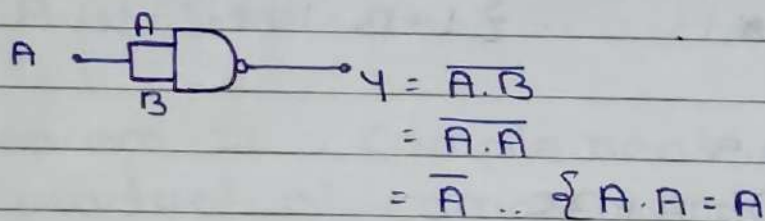 A
A
B
Y = \overline{A.B}
= \overline{A.A}
= \overline{A} .. { A.A = A